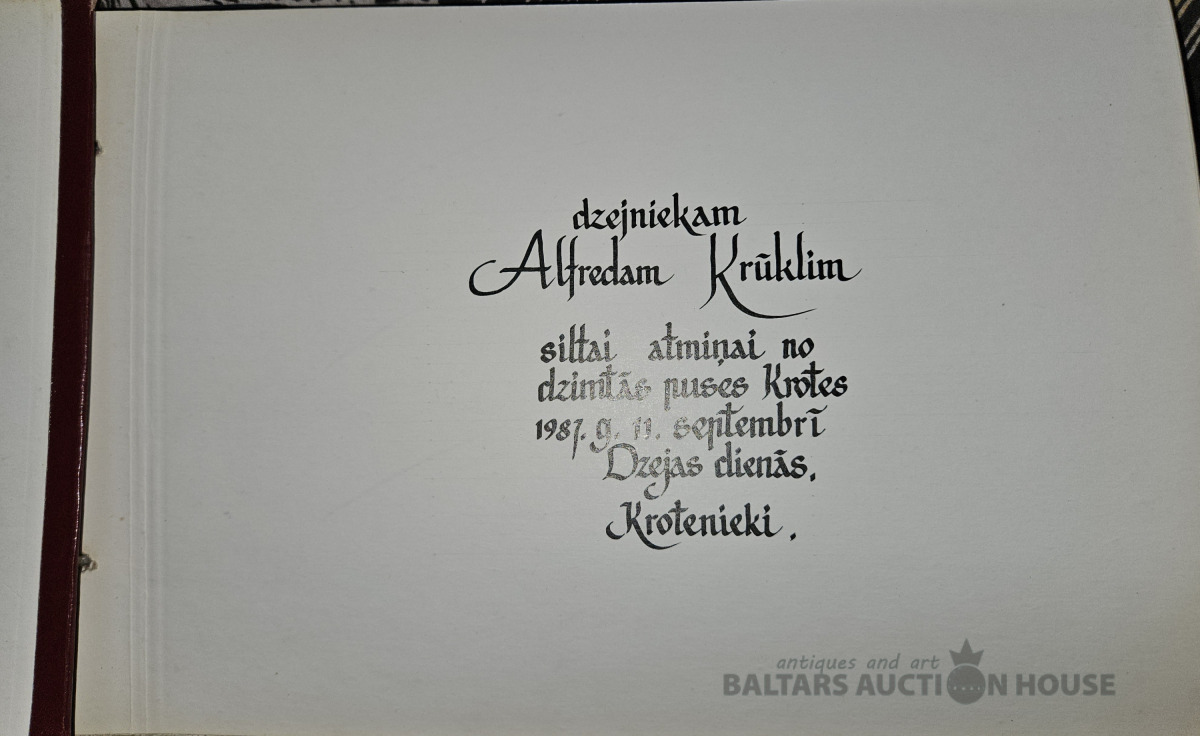 dzejniekam
Alfredam Krūklim
siltai atmiņai no
dzimtās puses Krotes
1987. g. 11. septembrī
Dzejas dienās.
Krotenieki.
antiques and art
BALTARS AUCTION HOUSE